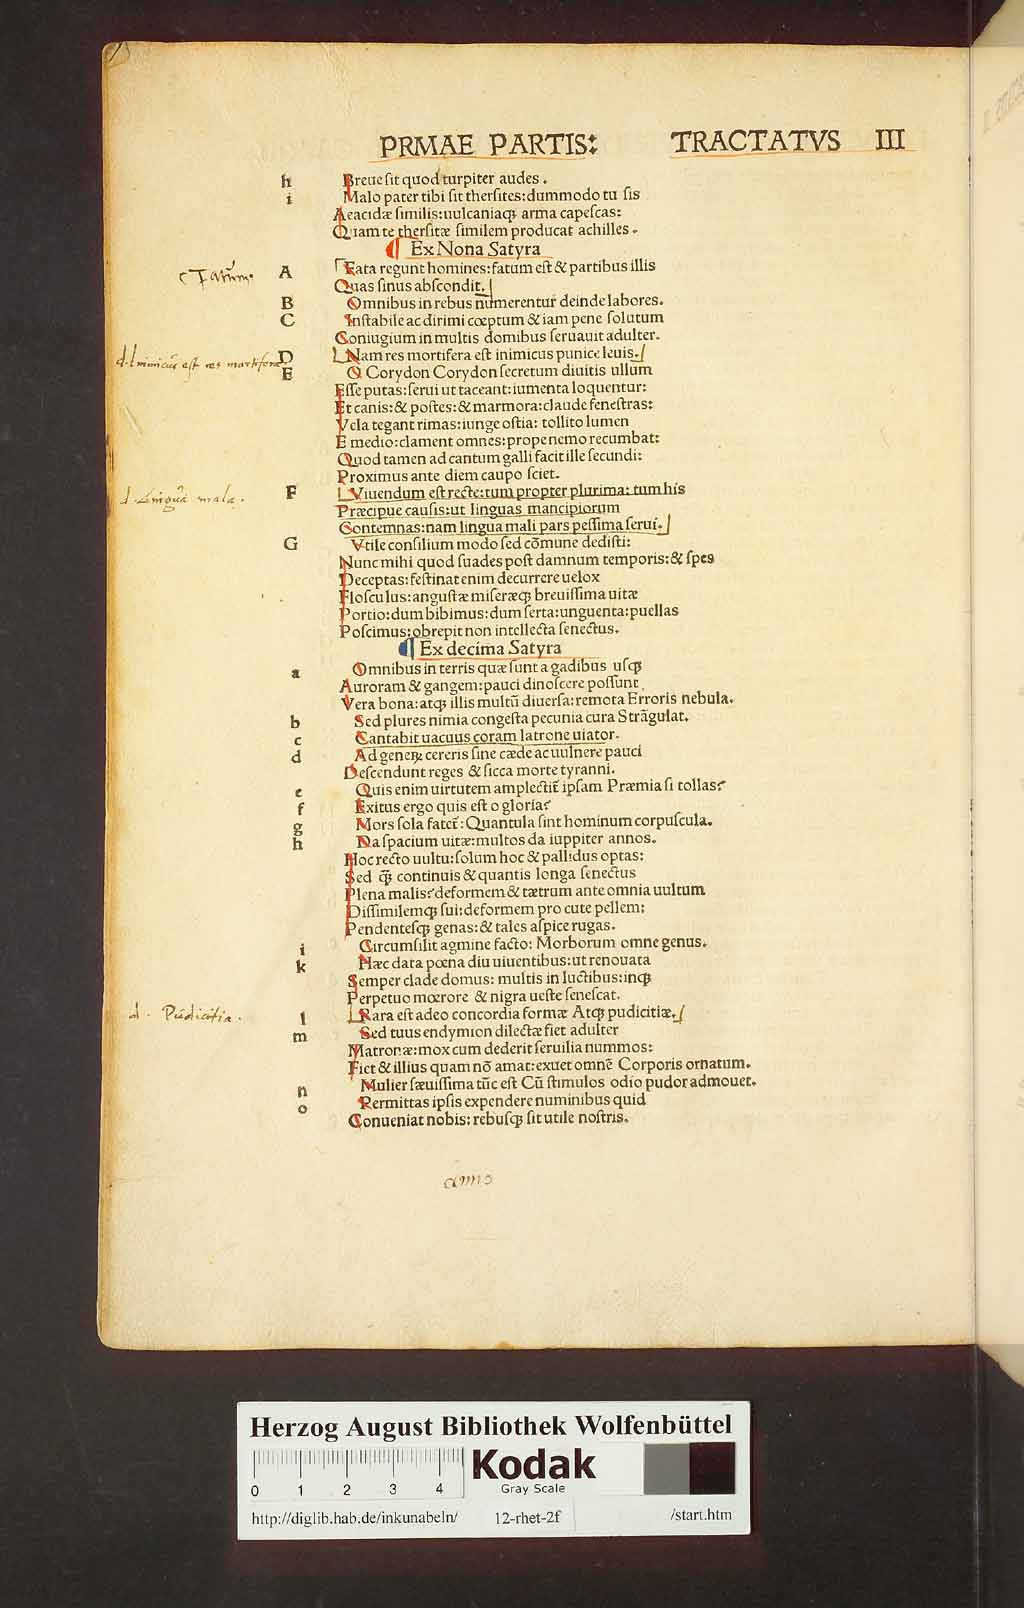 PRMAE PARTIS: TRACTATVS III
h Breue sit quod turpiter audes.
i Malo pater tibi sit thersites: dummodo tu sis
Aeacidæ similis: uulcaniaqꝫ arma capescas:
Quam te thersitæ similem producat achilles.
¶ Ex Nona Satyra
A Fata regunt homines: fatum est & partibus illis
Quas sinus abscondit.
B Omnibus in rebus numerentur deinde labores.
C Instabile ac dirimi cœptum & iam pene solutum
Coniugium in multis domibus seruauit adulter.
d. Inimicus est res mortifera D Nam res mortifera est inimicus punice leuis.
E O Corydon Corydon secretum diuitis ullum
Esse putas: serui ut taceant: iumenta loquentur:
Et canis: & postes: & marmora: claude fenestras:
Vela tegant rimas: iunge ostia: tollito lumen
E medio: clament omnes: prope nemo recumbat:
Quod tamen ad cantum galli facit ille secundi:
Proximus ante diem caupo sciet.
d. Lingua mala. F Viuendum est recte: tum propter plurima: tum his
Præcipue causis: ut linguas mancipiorum
Contemnas: nam lingua mali pars pessima serui.
G Vtile consilium modo sed cõmune dedisti:
Nunc mihi quod suades post damnum temporis: & spes
Deceptas: festinat enim decurrere uelox
Flosculus: angustæ miseræqꝫ breuissima uitæ
Portio: dum bibimus: dum serta: unguenta: puellas
Poscimus: obrepit non intellecta senectus.
¶ Ex decima Satyra
a Omnibus in terris quæ sunt a gadibus usqꝫ
Auroram & gangem: pauci dinoscere possunt
Vera bona: atqꝫ illis multũ diuersa: remota Erroris nebula.
b Sed plures nimia congesta pecunia cura Strãgulat.
c Cantabit uacuus coram latrone uiator.
d Ad geneꝝ cereris sine cæde ac uulnere pauci
Descendunt reges & sicca morte tyranni.
e Quis enim uirtutem amplectit̃ ipsam Præmia si tollas?
f Exitus ergo quis est o gloria?
g Mors sola fatet̃: Quantula sint hominum corpuscula.
h Da spacium uitæ: multos da iuppiter annos.
Hoc recto uultu: solum hoc & pallidus optas:
Sed q̃ꝫ continuis & quantis longa senectus
Plena malis? deformem & tætrum ante omnia uultum
Dissimilemqꝫ sui: deformem pro cute pellem:
Pendentesqꝫ genas: & tales aspice rugas.
i Circumsilit agmine facto: Morborum omne genus.
k Hæc data pœna diu uiuentibus: ut renouata
Semper clade domus: multis in luctibus: inqꝫ
Perpetuo mœrore & nigra ueste senescat.
d. Pudicitia. l Rara est adeo concordia formæ Atqꝫ pudicitiæ.
m Sed tuus endymion dilectæ fiet adulter
Matronæ: mox cum dederit seruilia nummos:
Fiet & illius quam nõ amat: exuet omnẽ Corporis ornatum.
n Mulier sæuissima tũc est Cũ stimulos odio pudor admouet.
o Permittas ipsis expendere numinibus quid
Conueniat nobis: rebusqꝫ sit utile nostris.
Herzog August Bibliothek Wolfenbüttel
0 1 2 3 4 Kodak
Gray Scale
http://diglib.hab.de/inkunabeln/ 12-rhet-2f /start.htm